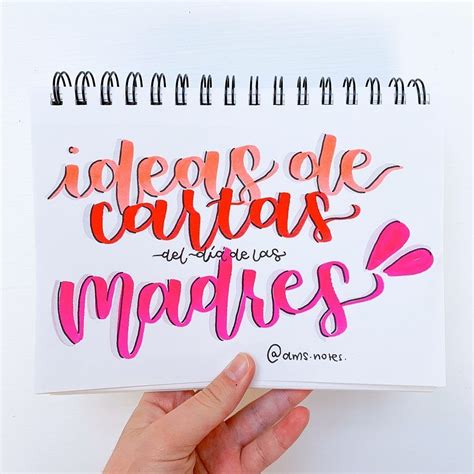 ideas de
cartas
del día de las
madres
@ams.notes.